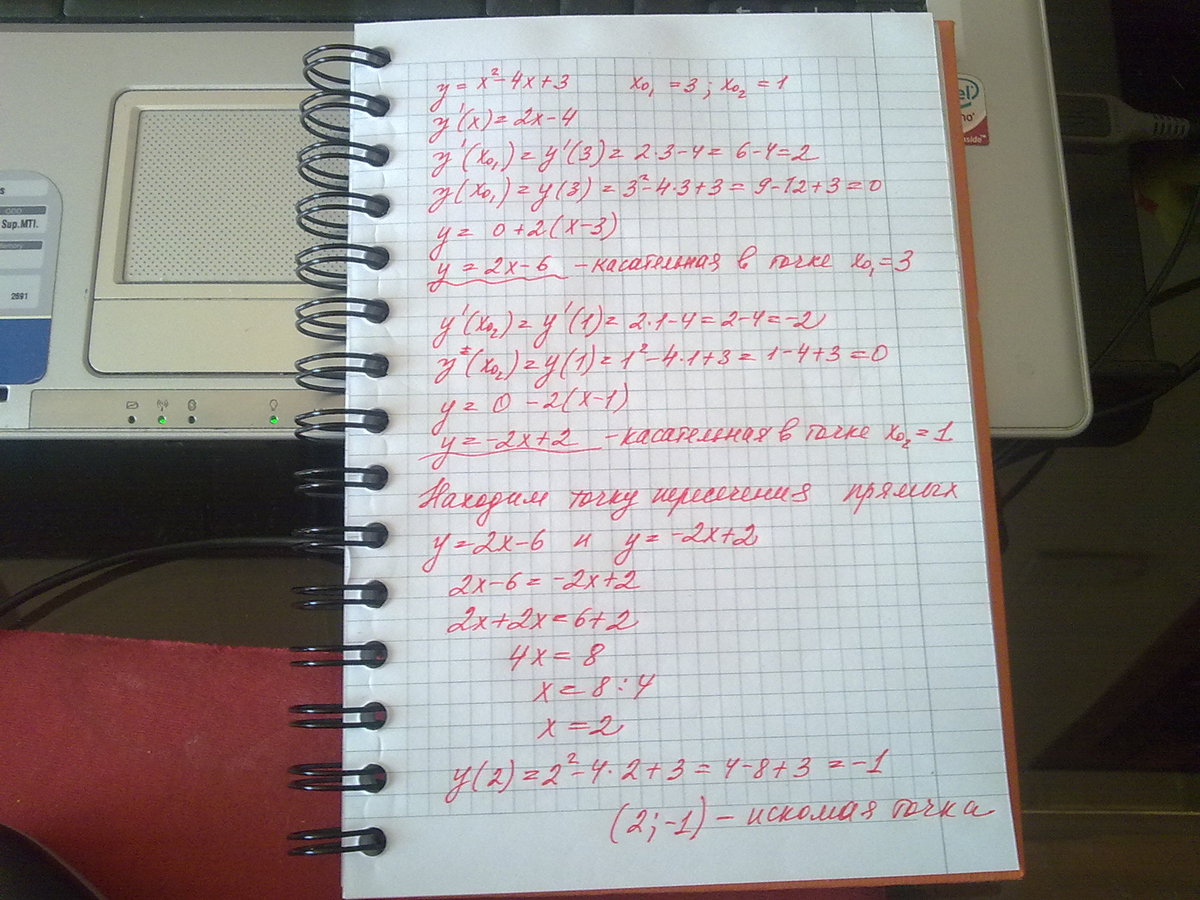 y = x²-4x+3 x₀₁ = 3; x₀₂ = 1
y'(x) = 2x-4
y'(x₀₁) = y'(3) = 2·3-4 = 6-4=2
y(x₀₁) = y(3) = 3²-4·3+3 = 9-12+3 = 0
y = 0+2(x-3)
y = 2x-6 - касательная в точке x₀₁ = 3
y'(x₀₂) = y'(1) = 2·1-4 = 2-4=-2
y(x₀₂) = y(1) = 1²-4·1+3 = 1-4+3 = 0
y = 0 -2(x-1)
y = -2x+2 - касательная в точке x₀₂ = 1
Находим точку пересечения прямых
y = 2x-6 и y = -2x+2
2x-6 = -2x+2
2x+2x = 6+2
4x = 8
x = 8:4
x = 2
y(2) = 2²-4·2+3 = 4-8+3 = -1
(2;-1) - искомая точка
Sup.MTI.
2691